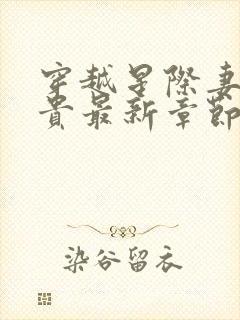 穿越星際妻
貴最新章節
染谷留衣